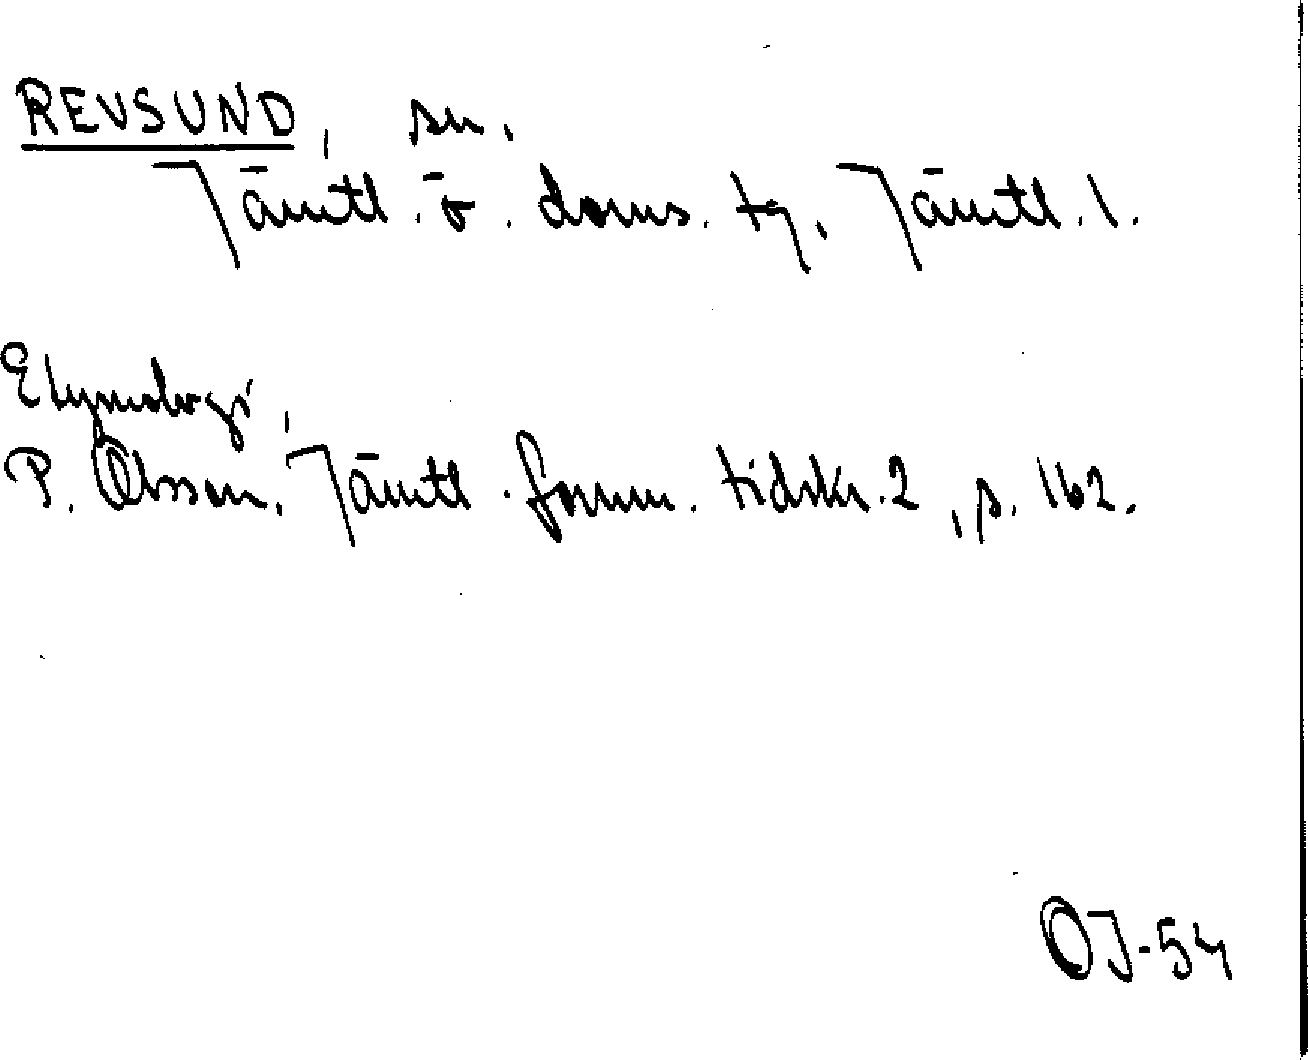 REVSUND, sn.
Jämtl. ö. doms. tg, Jämtl. l.
Etymologi,
P. Olsson, Jämtl. fornm. tidskr. 2, s. 162.
OJ-54